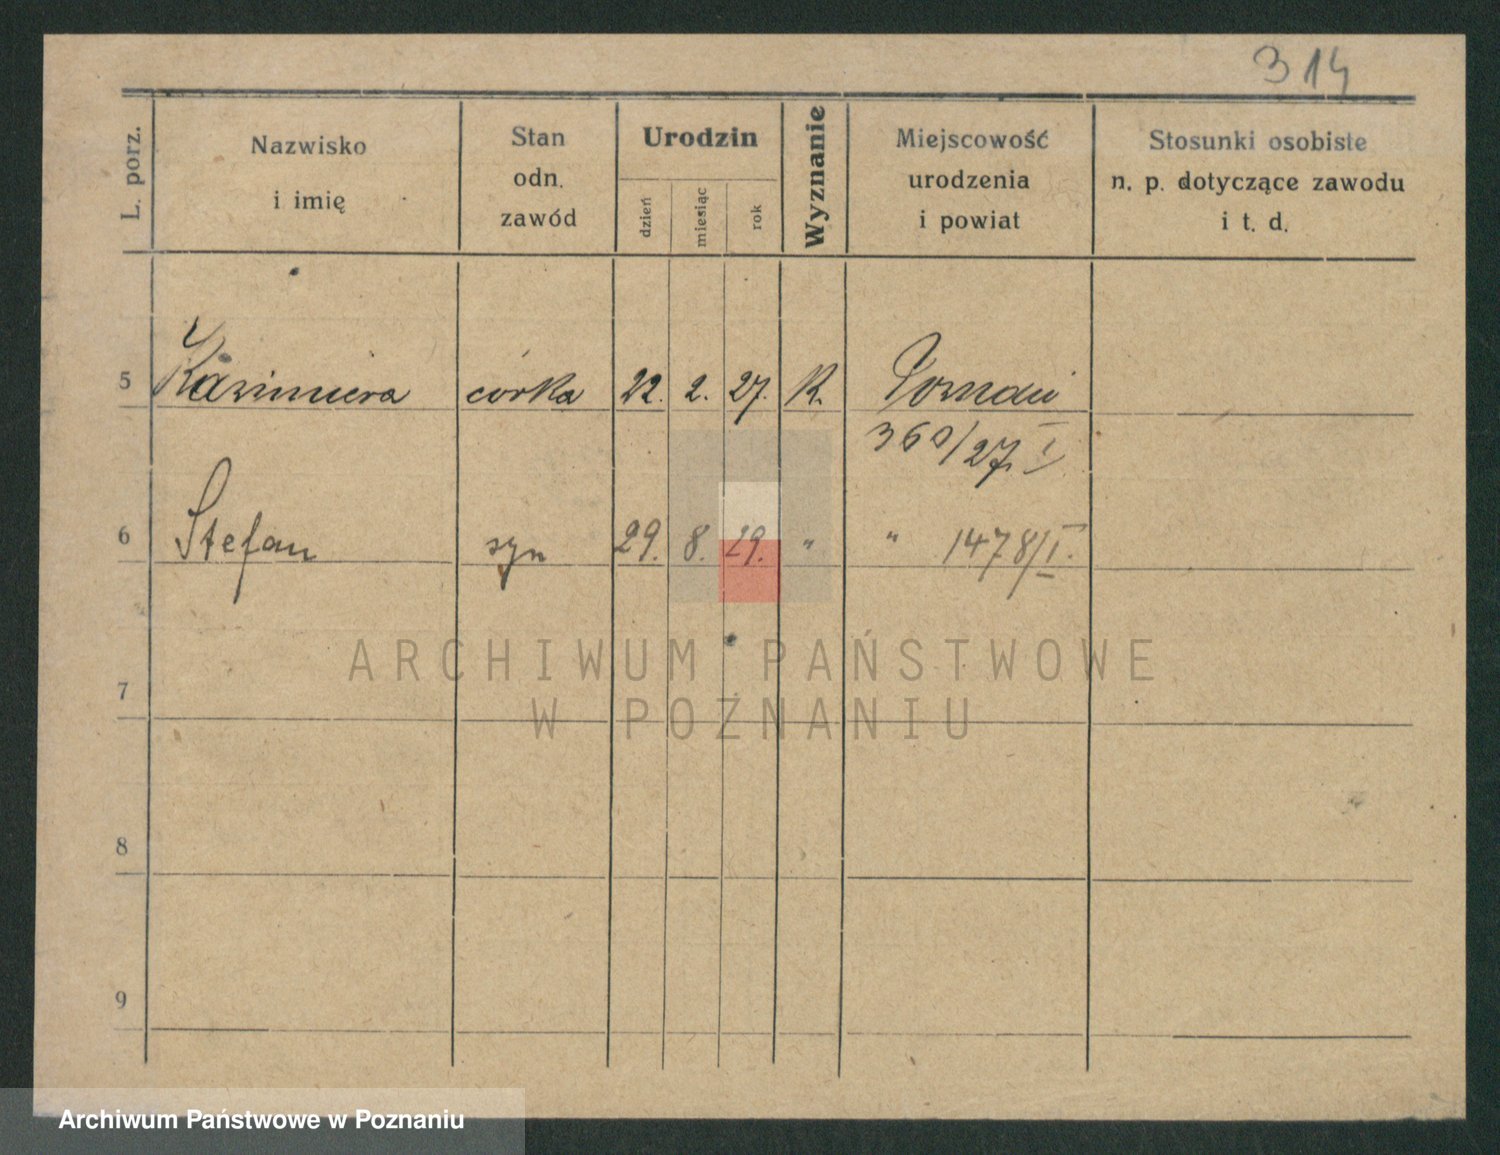 314
L. porz.
Nazwisko
i imię
Stan
odn.
zawód
Urodzin
dzień
miesiąc
rok
Wyznanie
Miejscowość
urodzenia
i powiat
Stosunki osobiste
n. p. dotyczące zawodu
i t. d.
5 Kazimiera córka 22. 2. 27. K. Poznań
360/27. I
6 Stefan syn 29. 8. 29. " " 1478/I.
7
8
9
ARCHIWUM PAŃSTWOWE
W POZNANIU
Archiwum Państwowe w Poznaniu